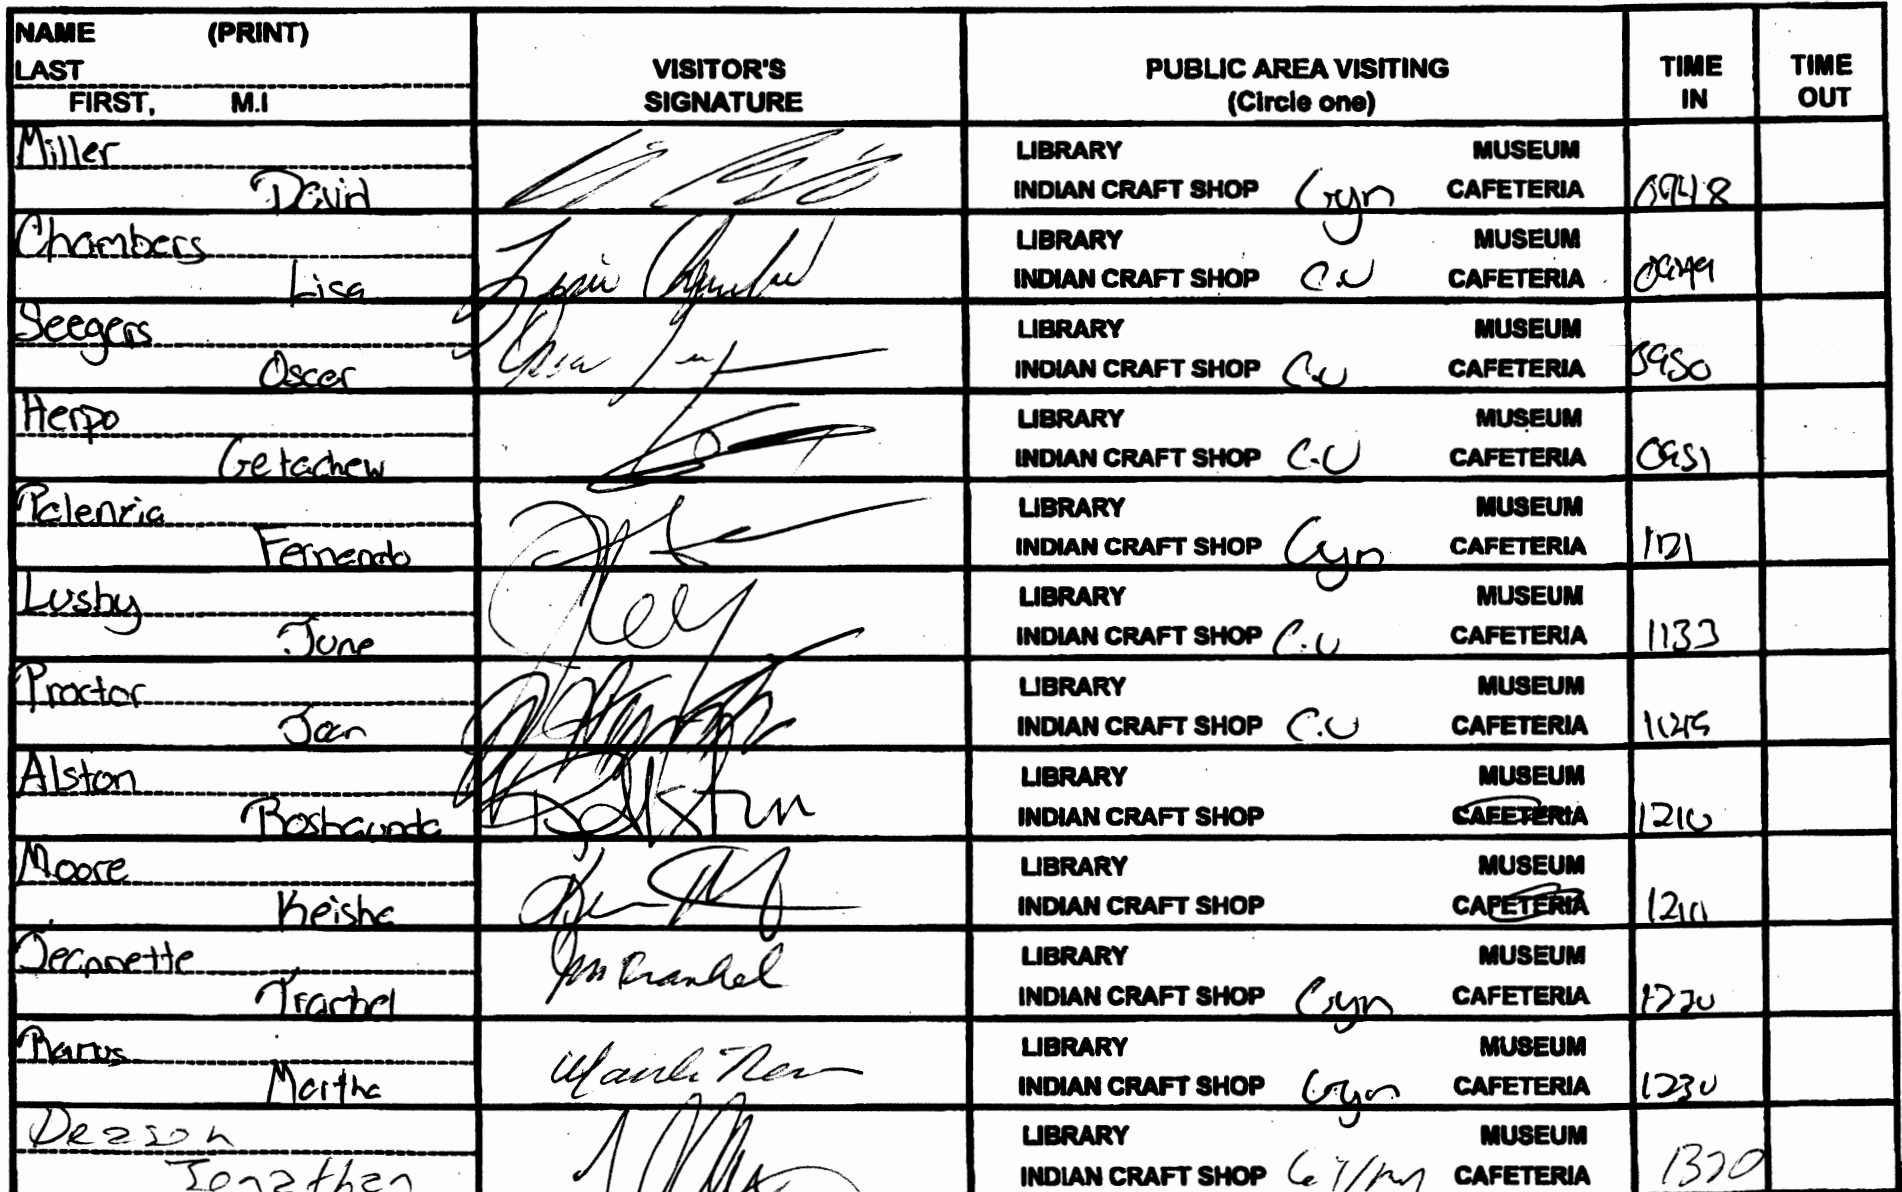 NAME (PRINT)
LAST
FIRST, M.I
VISITOR'S
SIGNATURE
PUBLIC AREA VISITING
(Circle one)
TIME
IN
TIME
OUT
Miller
David
LIBRARY MUSEUM
INDIAN CRAFT SHOP Gym CAFETERIA
0948
Chambers
Lisa
LIBRARY MUSEUM
INDIAN CRAFT SHOP C.U CAFETERIA
0949
Seegers
Oscar
LIBRARY MUSEUM
INDIAN CRAFT SHOP C.U CAFETERIA
0950
Herpo
Getachew
LIBRARY MUSEUM
INDIAN CRAFT SHOP C.U CAFETERIA
0951
Fernando
LIBRARY MUSEUM
INDIAN CRAFT SHOP Gym CAFETERIA
1121
Lusby
June
LIBRARY MUSEUM
INDIAN CRAFT SHOP C.U CAFETERIA
1133
Proctor
Joan
LIBRARY MUSEUM
INDIAN CRAFT SHOP C.U CAFETERIA
Alston
Roshaunda
LIBRARY MUSEUM
INDIAN CRAFT SHOP CAFETERIA
1210
Moore
Keisha
LIBRARY MUSEUM
INDIAN CRAFT SHOP CAFETERIA
1210
Jeannette
LIBRARY MUSEUM
INDIAN CRAFT SHOP Gym CAFETERIA
Martha
LIBRARY MUSEUM
INDIAN CRAFT SHOP Gym CAFETERIA
1230
Deason
Jonathan
LIBRARY MUSEUM
INDIAN CRAFT SHOP CAFETERIA
1320